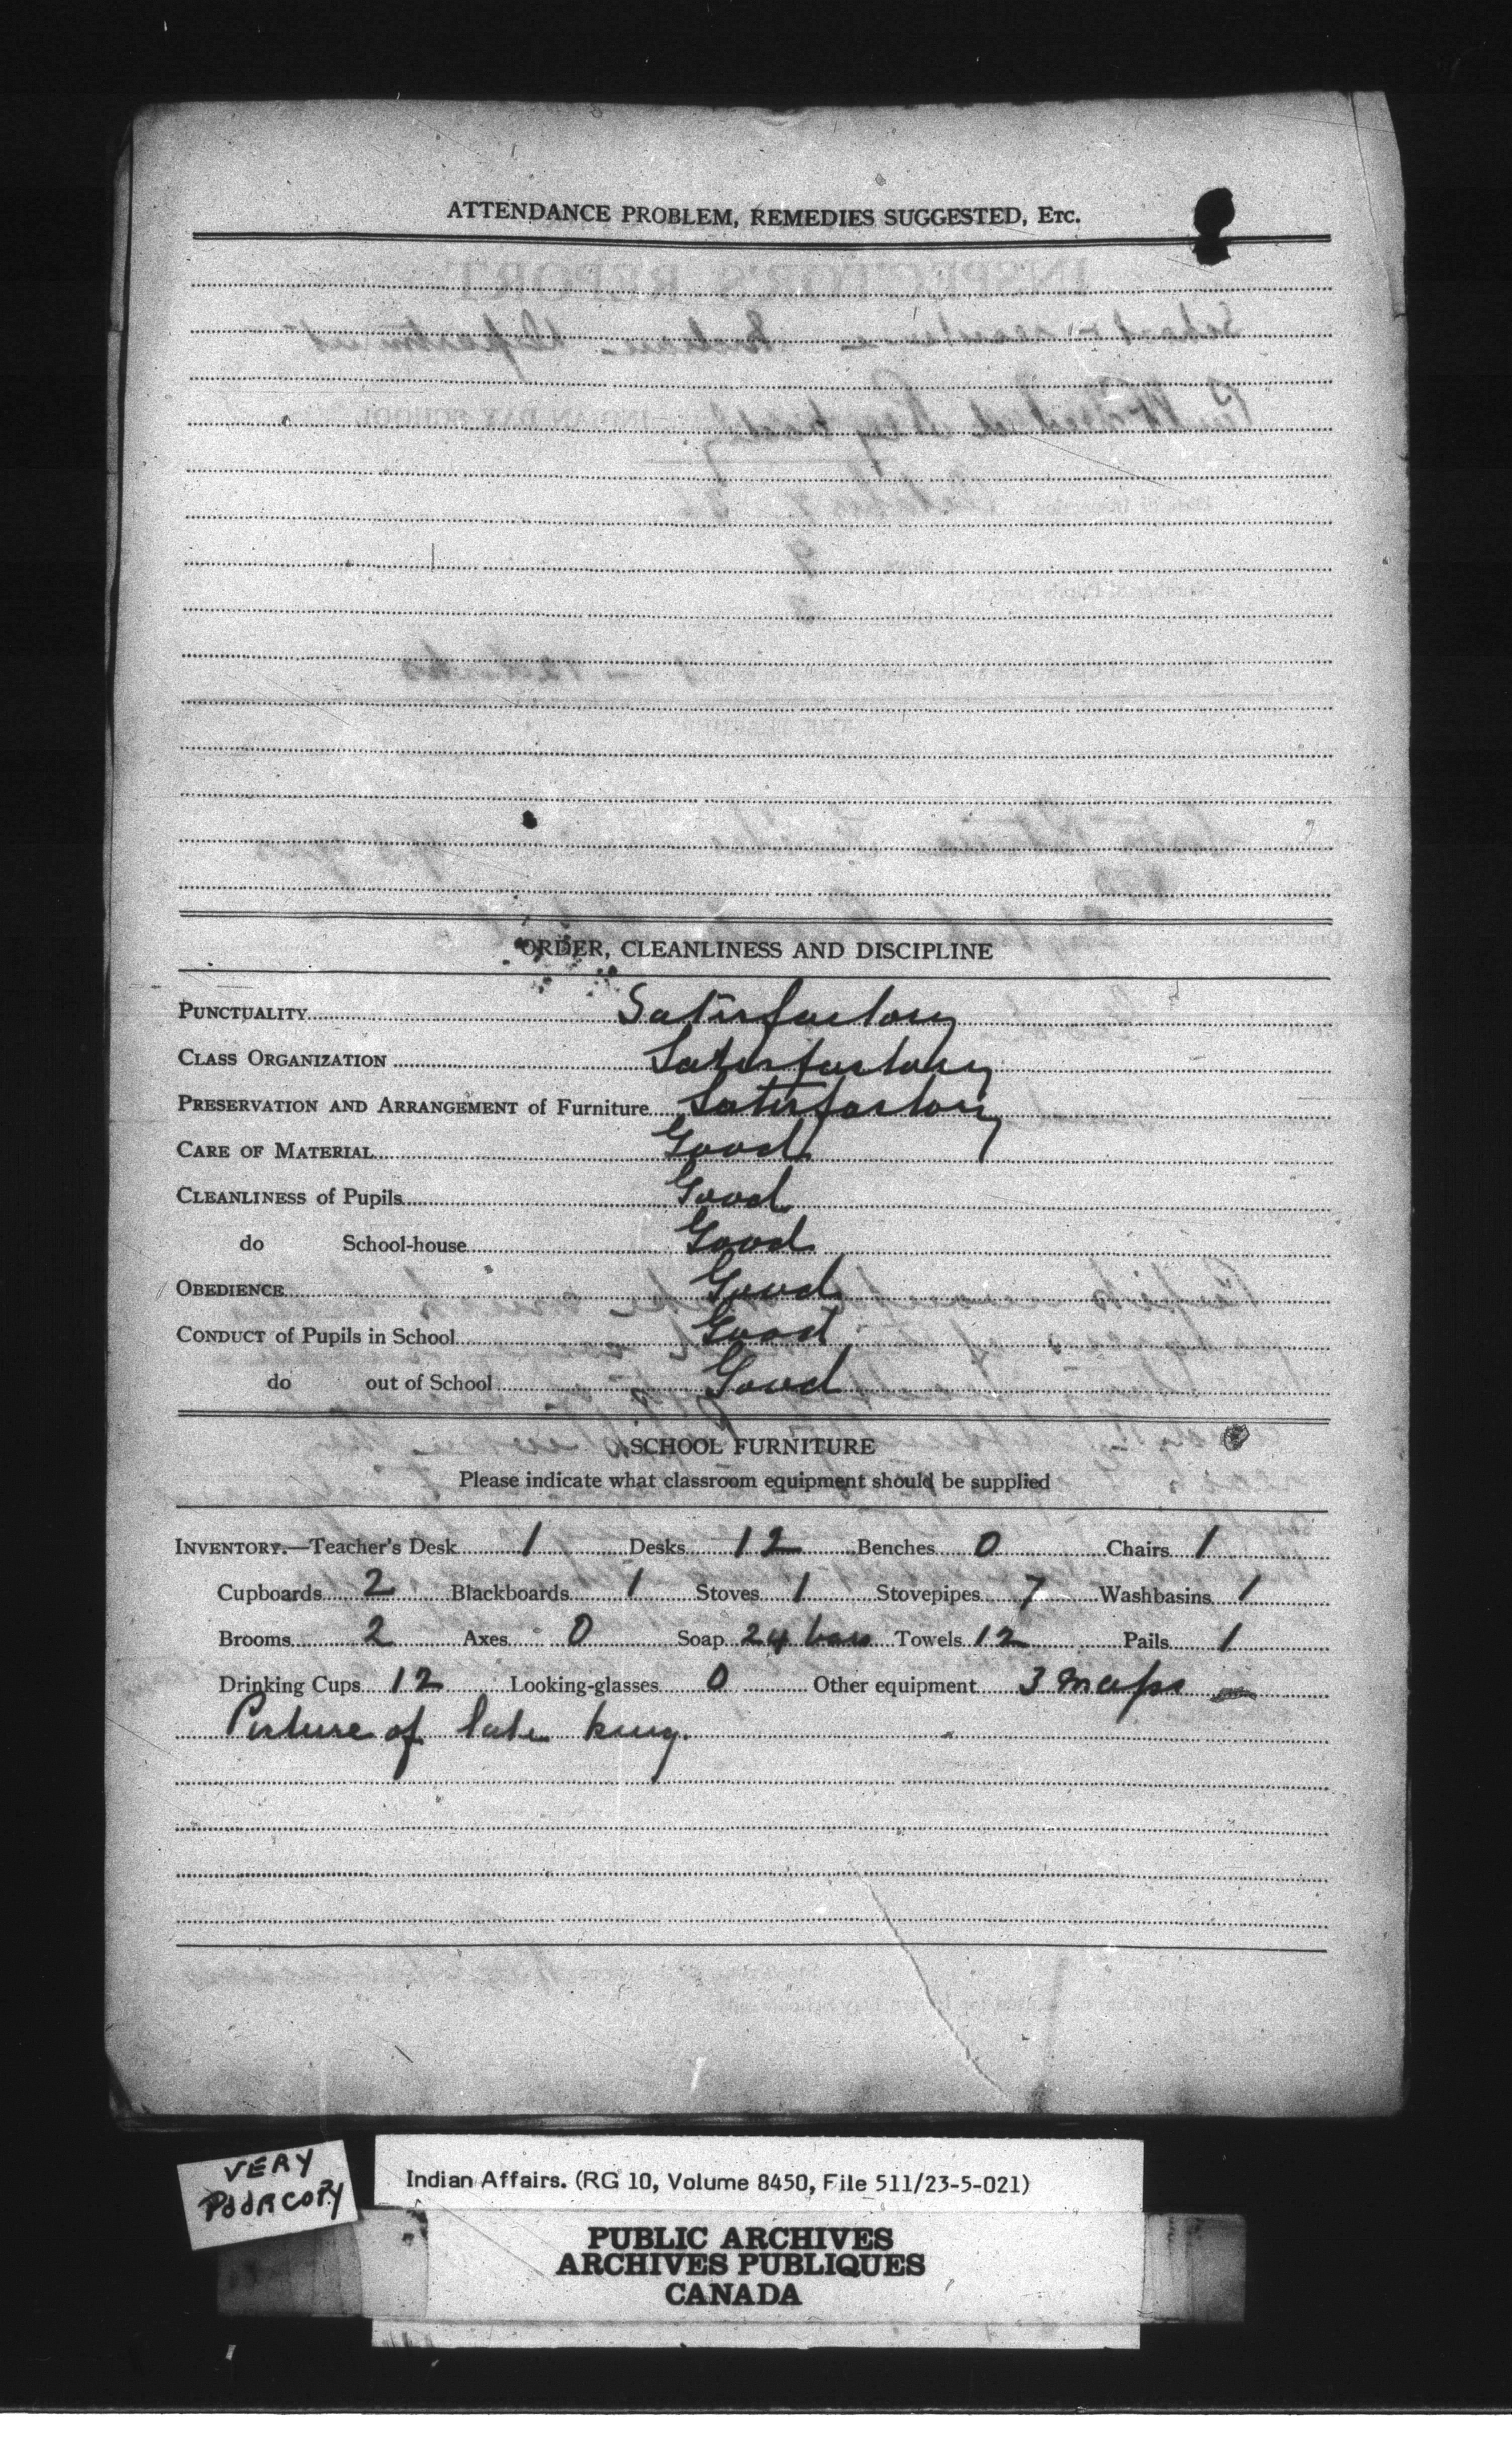 ATTENDANCE PROBLEM, REMEDIES SUGGESTED, Etc.
ORDER, CLEANLINESS AND DISCIPLINE
Punctuality Satisfactory
Class Organization Satisfactory
Preservation and Arrangement of Furniture Satisfactory
Care of Material Good
Cleanliness of Pupils Good
do School-house Good
Obedience Good
Conduct of Pupils in School Good
do out of School Good
SCHOOL FURNITURE
Please indicate what classroom equipment should be supplied
Inventory.—Teacher's Desk 1 Desks 12 Benches 0 Chairs 1
Cupboards 2 Blackboards 1 Stoves 1 Stovepipes 7 Washbasins 1
Brooms 2 Axes 0 Soap 24 bars Towels 12 Pails 1
Drinking Cups 12 Looking-glasses 0 Other equipment 3 maps
Picture of late king.
VERY
POOR COPY
Indian Affairs. (RG 10, Volume 8450, File 511/23-5-021)
PUBLIC ARCHIVES
ARCHIVES PUBLIQUES
CANADA